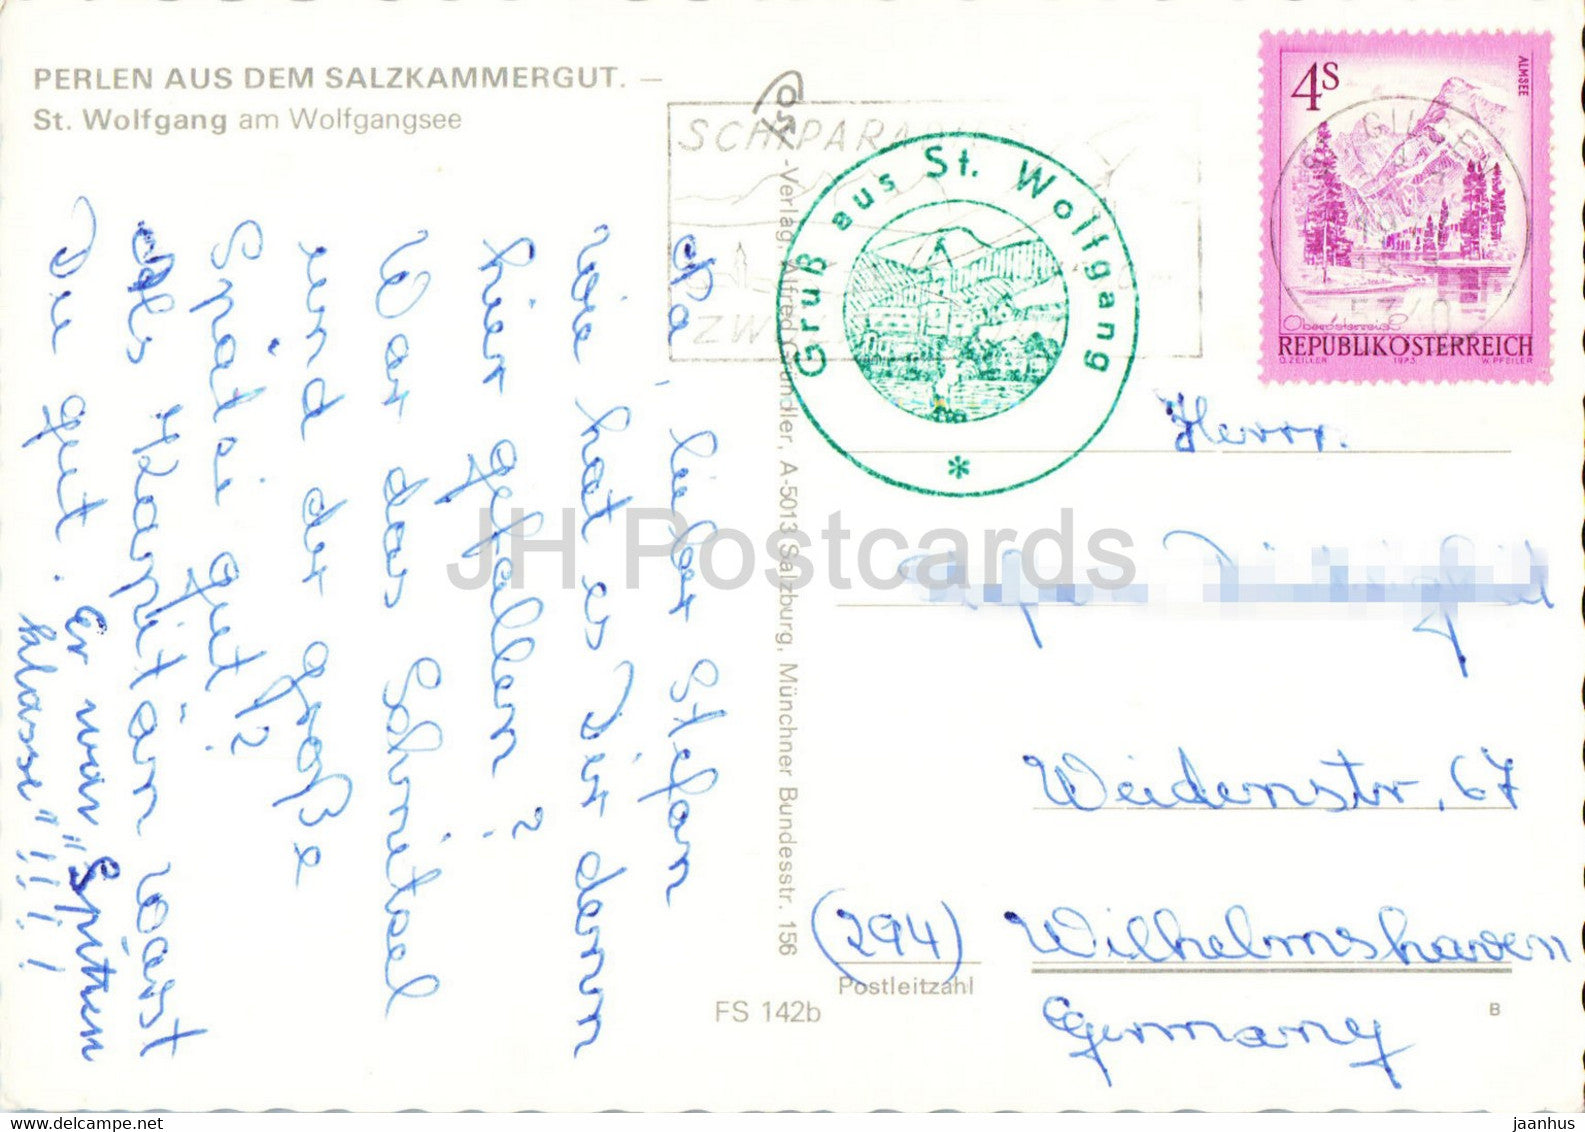 PERLEN AUS DEM SALZKAMMERGUT. —
St. Wolfgang am Wolfgangsee
Na, lieber Stefan
wie hat es Dir denn
hier gefallen?
War das Schnitzel
und der große
Spatzi gut?
Als Kapitän wärst
Du gut. Er war "Spitzen
klasse"!!!!
-Verlag, Alfred Gründler, A-5013 Salzburg, Münchner Bundesstr. 156
SCHIPARA
ZW
Gruß aus St. Wolfgang
*
4S
ALMSEE
GILGEN
5340
Oberösterreich
REPUBLIK ÖSTERREICH
O. ZEILLER 1973 W. PFEILER
Herrn
Weidenstr. 67
(294) Wilhelmshaven
Postleitzahl
Germany
FS 142b
B
JH Postcards
HTTPS://WWW.DELCAMPE.NET
jaanhus